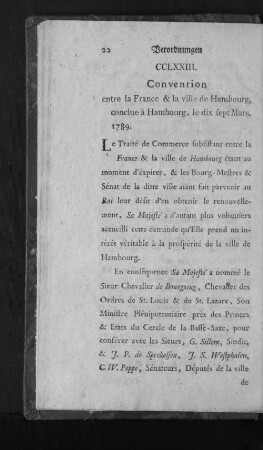 22 Verordnungen
CCLXXIII.
Convention
entre la France & la ville de Hambourg,
conclue à Hambourg, le dix sept Mars,
1789.
Le Traité de Commerce subsistant entre la
France & la ville de Hambourg étant au
moment d'éxpirer, & les Bourg-Mestres &
Sénat de la ditte ville aïant fait parvenir au
Roi leur désir d'en obtenir le renouvelle-
ment, Sa Majesté a d'autant plus volontiers
accueilli cette demande qu'Elle prend un in-
térêt véritable à la prospérité de la ville de
Hambourg.
En conséquence Sa Majesté a nommé le
Sieur Chevalier de Bourgoing, Chevalier des
Ordres de St. Louis & de St. Lazare, Son
Ministre Plénipotentiaire près des Princes
& Etats du Cercle de la Basse-Saxe, pour
conférer avec les Sieurs, G. Sillem, Sindic,
& J. P. de Spreckelsen, J. S. Westphalen,
C. W. Poppe, Sénateurs, Députés de la ville
de